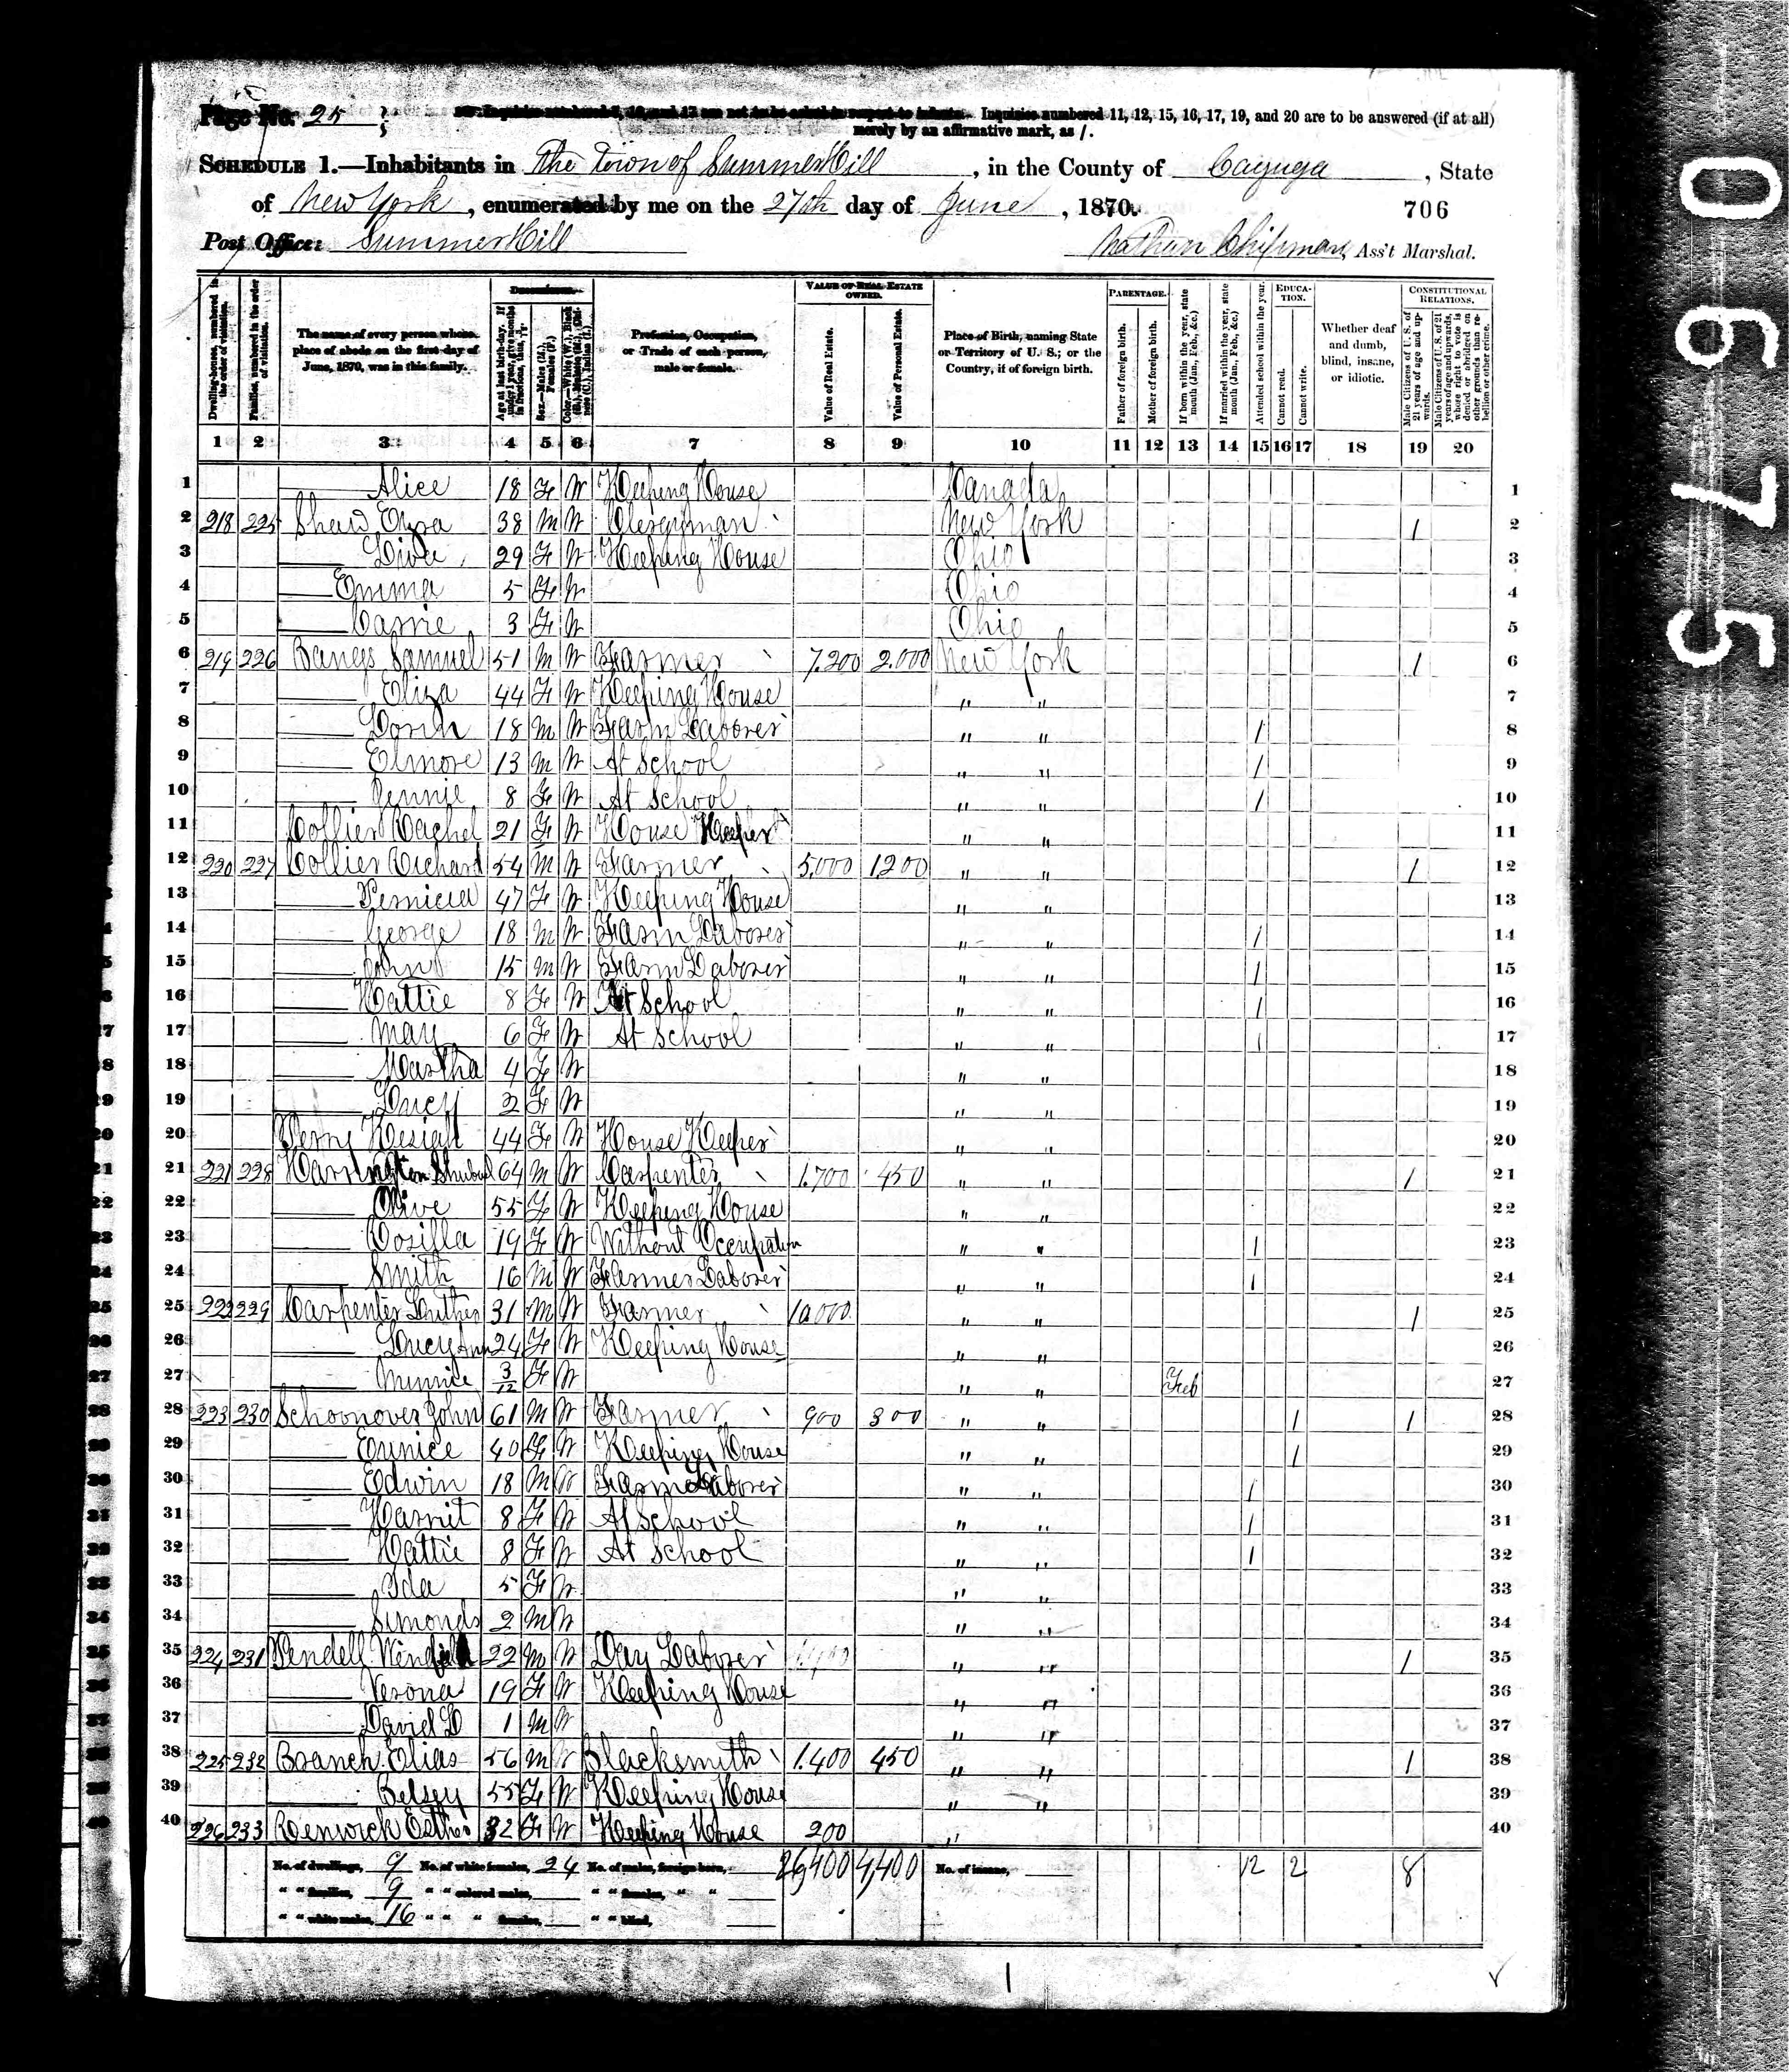 Page No. 25
Inquiries numbered 11, 12, 15, 16, 17, 19, and 20 are to be answered (if at all)
merely by an affirmative mark, as /.
SCHEDULE 1.—Inhabitants in The Town of SummerHill, in the County of Cayuga, State
of New York, enumerated by me on the 27th day of June, 1870. 706
Post Office: SummerHill Nathan Chipman, Ass't Marshal.
Dwelling-houses, numbered in the order of visitation.
Families, numbered in the order of visitation.
The name of every person whose place of abode on the first day of June, 1870, was in this family.
Description.
Age at last birth-day. If under 1 year, give months in fractions, thus, 3/12.
Sex.—Males (M.), Females (F.)
Color.—White (W.), Black (B.), Mulatto (M.), Chinese (C.), Indian (I.)
Profession, Occupation, or Trade of each person, male or female.
VALUE OF REAL ESTATE OWNED.
Value of Real Estate.
Value of Personal Estate.
Place of Birth, naming State or Territory of U. S.; or the Country, if of foreign birth.
PARENTAGE.
Father of foreign birth.
Mother of foreign birth.
If born within the year, state month (Jan., Feb., &c.)
If married within the year, state month (Jan., Feb., &c.)
Attended school within the year.
EDUCATION.
Cannot read.
Cannot write.
Whether deaf and dumb, blind, insane, or idiotic.
CONSTITUTIONAL RELATIONS.
Male Citizens of U. S. of 21 years of age and upwards.
Male Citizens of U. S. of 21 years of age and upwards, whose right to vote is denied or abridged on other grounds than rebellion or other crime.
1 2 3 4 5 6 7 8 9 10 11 12 13 14 15 16 17 18 19 20
1 Alice 18 F W Keeping House Canada 1
2 218 225 Shaw Ezra 38 M W Clergyman New York / 2
3 29 F W Keeping House Ohio 3
4 Emma 5 F W Ohio 4
5 Carrie 3 F W Ohio 5
6 219 226 Bangs Samuel 51 M W Farmer 7.200 2.000 New York / 6
7 Eliza 44 F W Keeping House " " 7
8 18 M W Farm Laborer " " / 8
9 Elmore 13 M W At School " " / 9
10 Jennie 8 F W At School " " / 10
11 Collier Rachel 21 F W House Keeper " " 11
12 220 227 Collier Richard 54 M W Farmer 5,000 1200 " " / 12
13 47 F W Keeping House " " 13
14 George 18 M W Farm Laborer " " / 14
15 John 15 M W Farm Laborer " " / 15
16 Hattie 8 F W At School " " / 16
17 May 6 F W At School " " / 17
18 Martha 4 F W " " 18
19 Lucy 2 F W " " 19
20 Perry Kesiah 44 F W House Keeper " " 20
21 221 228 Harrington Shubuel 64 M W Carpenter 1.700 450 " " / 21
22 Olive 55 F W Keeping House " " 22
23 Rosilla 19 F W Without Occupation " " / 23
24 Smith 16 M W Farmer Laborer " " / 24
25 222 229 Carpenter Luther 31 M W Farmer 10.000 " " / 25
26 Lucy Ann 24 F W Keeping House " " 26
27 Minnie 3/12 F W " " Feb 27
28 223 230 Schoonover John 61 M W Farmer 900 300 " " / / 28
29 Eunice 40 F W Keeping House " " / 29
30 Edwin 18 M W Farm Laborer " " / 30
31 Harriet 8 F W At School " " / 31
32 Hattie 8 F W At School " " / 32
33 Ida 5 F W " " 33
34 Simonds 2 M W " " 34
35 224 231 Pendell Winfield 22 M W Day Laborer " " / 35
36 Verona 19 F W Keeping House " " 36
37 David D 1 M W " " 37
38 225 232 Branch Elias 56 M W Blacksmith 1.400 450 " " / 38
39 Betsey 55 F W Keeping House " " 39
40 226 233 Renwick Esther 82 F W Keeping House 200 " 40
No. of dwellings, 9 No. of white females, 24 No. of males, foreign born, 26,400 4,400 No. of insane, 12 2 8
" " families, 9 " " colored males, " " females, " "
" " white males, 16 " " " females, " " blind,
0675